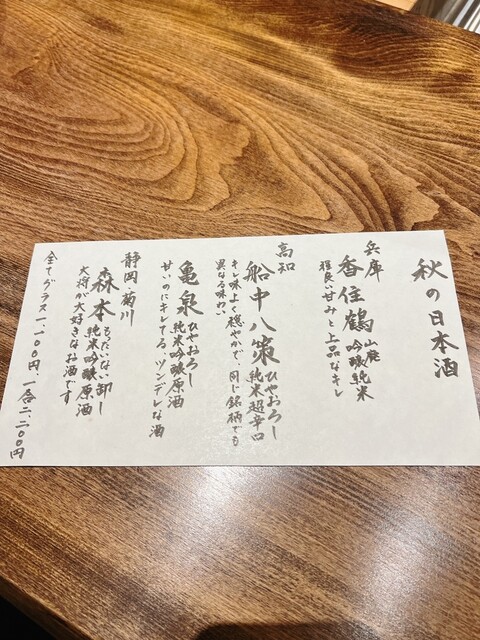 秋の日本酒
兵庫
香住鶴 山廃 吟醸純米
程良い甘みと上品なキレ
高知
船中八策 ひやおろし 純米超辛口
キレ味よく穏やかで、同じ銘柄でも
異なる味わい
亀泉 ひやおろし 純米吟醸原酒
甘いのにキレてる、ツンデレな酒
静岡 菊川
森本 もったいない卸し 純米吟醸原酒
大将が大好きなお酒です
全てグラス一、一〇〇円 一合二、二〇〇円